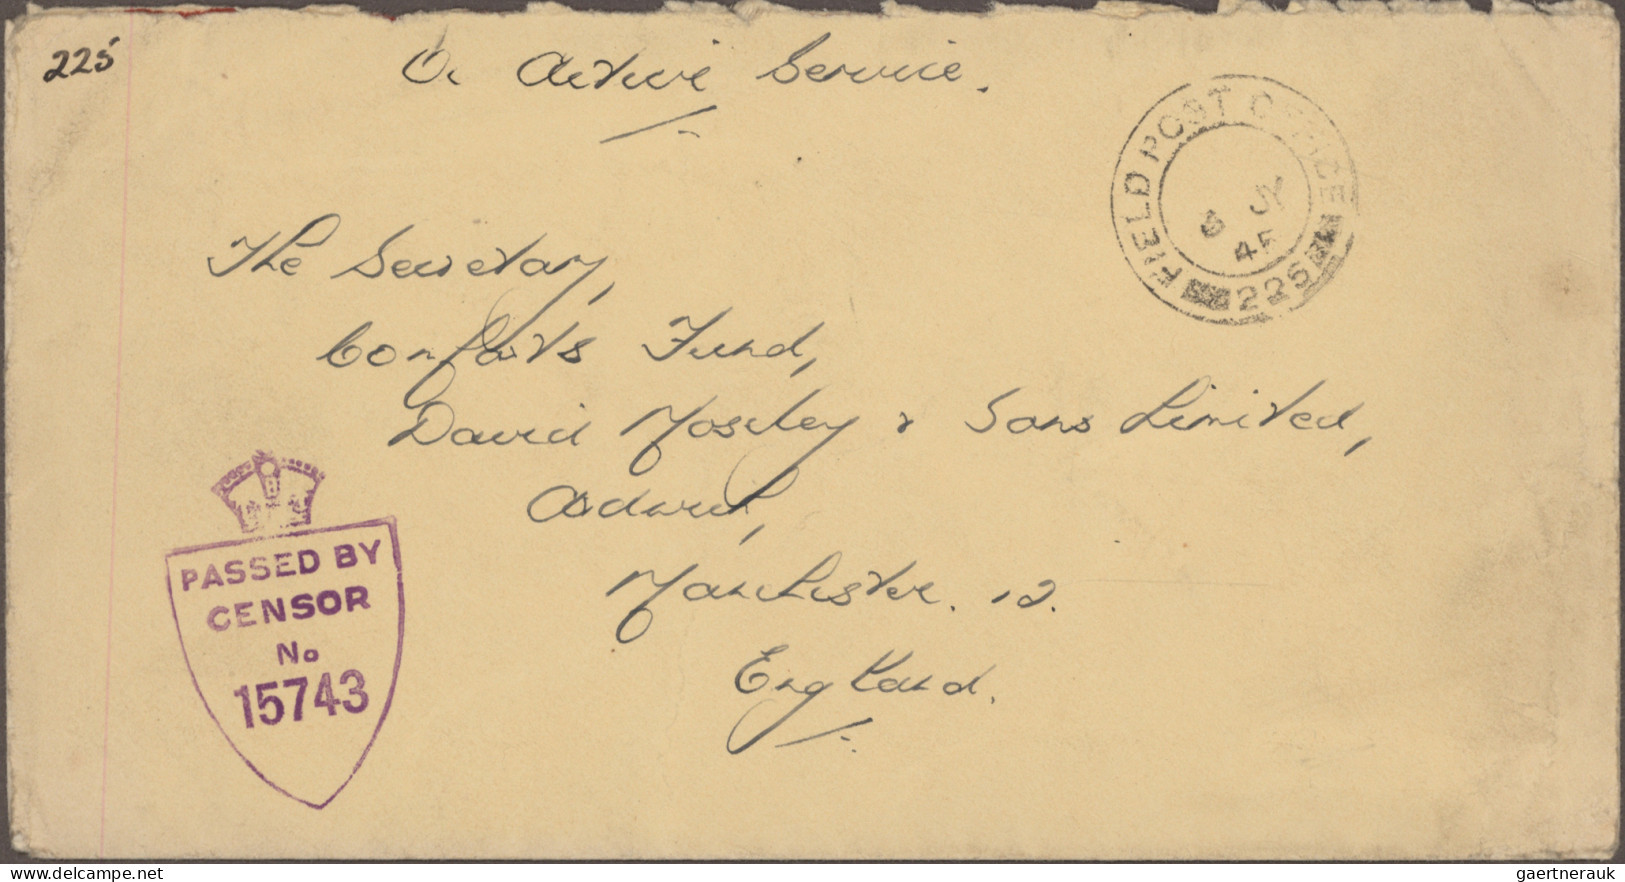 225
On Active Service.
FIELD POST OFFICE
JY
45
225
The Secretary,
Comforts Fund,
David Moseley & Sons Limited,
Ardwick,
Manchester. 12.
England.
PASSED BY
CENSOR
No
15743
delcampe.net
gaertnerauk